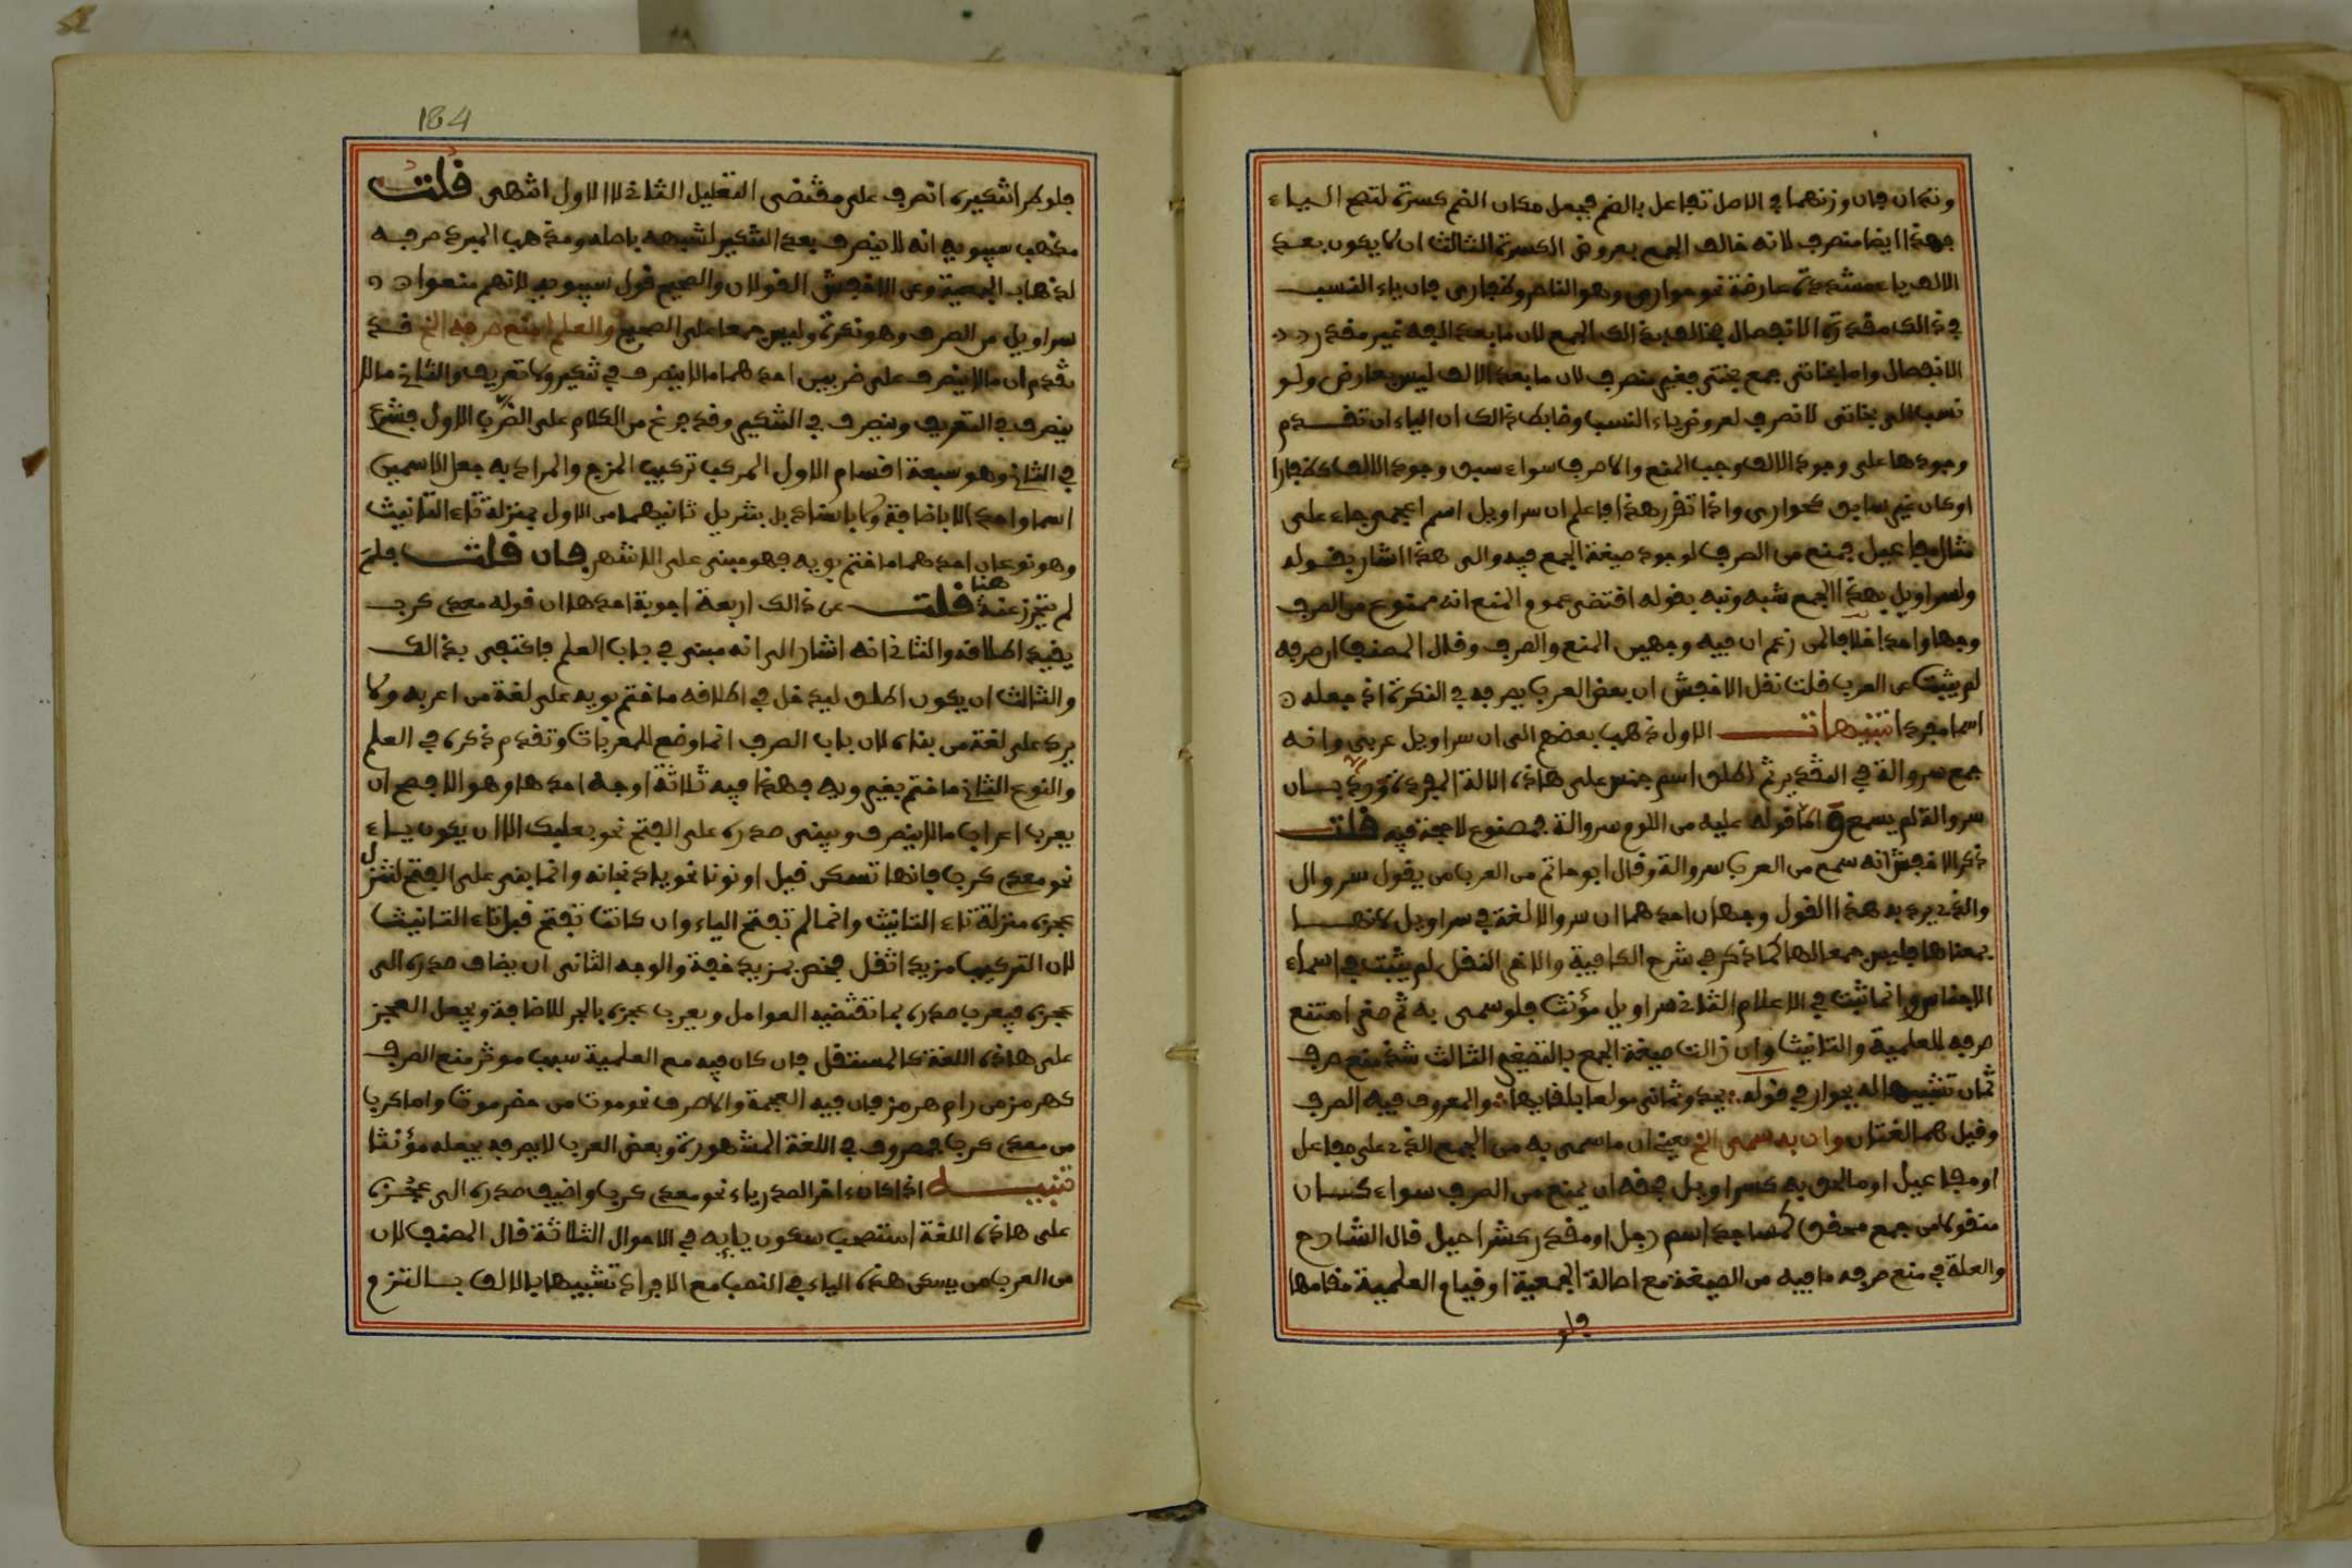 وتدان فان وزنهما في الاصل تفاعل بالضم فجعل مكان الضم كسرة لتصح اليـاء
فهذا ايضا منصرف لانه خالف الجمع بعروض الكسرة الثالث ان لا يكون بعـد
الالف ياء مشددة عارضة نحو حوارى وهو الناصر وكفجارى فان ياء النسب
في ذالك مقدرة الانفصال فخالف بذالك الجمع لان ما بعد الفه غير مقدر
الانفصال واما بخاتى جمع بختى فغير منصرف لان ما بعد الالف ليس بعارض ولو
نسب الى بخاتى لانصرف لعروض ياء النسب وضابط ذالك ان الياء ان تقـدم
وجودها على وجود الالف وجب المنع والا صرف سواء سبق وجود الالف كظفارا
او كان غير سابق كحوارى واذا تقرر هذا فاعلم ان سراويل اسم اعجمى جاء على
مثال مفاعيل فمنع من الصرف لوجود صيغة الجمع فيه والى هذا اشار بقـوله
ولسراويل بهذا الجمع شبه ونبه بقوله اقتضى عموم المنع انه ممنوع من الصرف
وجها واحدا خلافا لمن زعم ان فيه وجهين المنع والصرف وقال المصنف ان صرفه
لم يثبت عن العرب قلت نقل الاخفش ان بعض العرب يصرفه في النكرة اذ جعله
اسما مفردا تنبيهات الاول ذهب بعضهم الى ان سراويل عربي وانـه
جمع سروالة في التقدير ثم اطلق اسم جنس على هاذه الالة المفردة ورد بـان
سروالة لم يسمع واما قوله عليه من اللوم سروالة فمصنوع لا حجة فيه قلت
ذكر الاخفش انه سمع من العرب سروالة وقال ابو حاتم من العرب من يقول سروال
والذي يرد به هذا القول وجهان احدهما ان سروالا لغة في سراويل لانهـا
بمعناها فليس جمعا لها كما ذكر في شرح الكافية والاخر النقل لم يثبت في اسماء
الاجناس وانما ثبت في الاعلام الثانى سراويل مؤنث فلو سمى به ثم صغر امتنع
صرفه للعلمية والتانيث وان زالت صيغة الجمع بالتصغير الثالث شذ منع صرف
ثمان تشبيها له بجوار في قوله يحدو ثمانى مولعا بلقاحها والمعروف فيه الصرف
وقيل هما لغتان وان به سمى الخ يعنى ان ما سمى به من الجمع الذي على مفاعل
او مفاعيل او ما لحق به كسراويل فحقه ان يمنع من الصرف سواء كـان
منقولا من جمع محقق كمساجد اسم رجل او مقدر كشراحيل قال الشارح
والعلة في منع صرفه ما فيه من الصيغة مع اصالة الجمعية او قيام العلمية مقامها
فلو
184
فلو طر اتنكيره انصرف على مقتضى التعليل الثانى لا الاول انتهى قلت
مذهب سيبويه انه لا ينصرف بعد التنكير لشبهه باصله ومذهب المبرد صرفـه
لذهاب الجمعية وعن الاخفش القولان والصحيح قول سيبويه لانهم منعوا
سراويل من الصرف وهو نكرة وليس جمعا على الصحيح والعلم امنع صرفه الخ قـد
تقدم ان ما لا ينصرف على ضربين احدهما ما لا ينصرف في تنكير ولا تعريف والثانى ما لا
ينصرف في التعريف وينصرف في التنكير وقد فرغ من الكلام على الضرب الاول فشرع
في الثانى وهو سبعة اقسام الاول المركب تركيب المزج والمراد به جعل الاسمين
اسما واحدا لا باضافة ولا باسناد بل بتنزيل ثانيهما من الاول بمنزلة تاء التانيث
وهو نوعان احدهما ما ختم بويه فهو مبنى على الاشهر فان قلت فلم
لم يحترز عنه هنا قلت عن ذالك اربعة اجوبة احدها ان قوله معدى كرب
يفيد اطلاقه والثانى انه اشار الى انه مبنى في باب العلم فاكتفى بذالك
والثالث ان يكون اطلق ليدخل في اطلاقه ما ختم بويه على لغة من اعربه ولا
يرد على لغة من بناه لان باب الصرف انما وضع للمعربات وتقدم ذكره في العلم
والنوع الثانى ما ختم بغير ويه فهذا فيه ثلاثة اوجه احدها وهو الافصح ان
يعرب اعراب ما لا ينصرف ويبنى صدره على الفتح نحو بعلبك الا ان يكون يـاء
نحو معدى كرب فانها تسكن قبل او نونا نحو باذنجانه وانما بنى على الفتح لتنزل
عجزه منزلة تاء التانيث وانما لم تفتح الياء وان كانت تفتح قبل تاء التانيث
لان التركيب مزيد اثقل فخص بمزيد خفة والوجه الثانى ان يضاف صدره الى
عجزه فيعرب صدره بما تقتضيه العوامل ويعرب عجزه بالجر للاضافة ويجعل العجز
على هاذه اللغة كالمستقل فان كان فيه مع العلمية سبب موثر منع الصرف
كهرمز من رام هرمز فان فيه العجمة والا صرف نحو موت من حضرموت واما كرب
من معدى كرب فمصروف في اللغة المشهورة وبعض العرب لا يصرفه يجعله مؤنثا
تنبيـه اذا كان اخر الصدر ياء نحو معدى كرب واضيف صدره الى عجـزه
على هاذه اللغة استصحب سكون يايه في الاحوال الثلاثة قال المصنف لان
من العرب من يسكن هذه الياء في النصب مع الافراد تشبيها بالالف بـالتزم